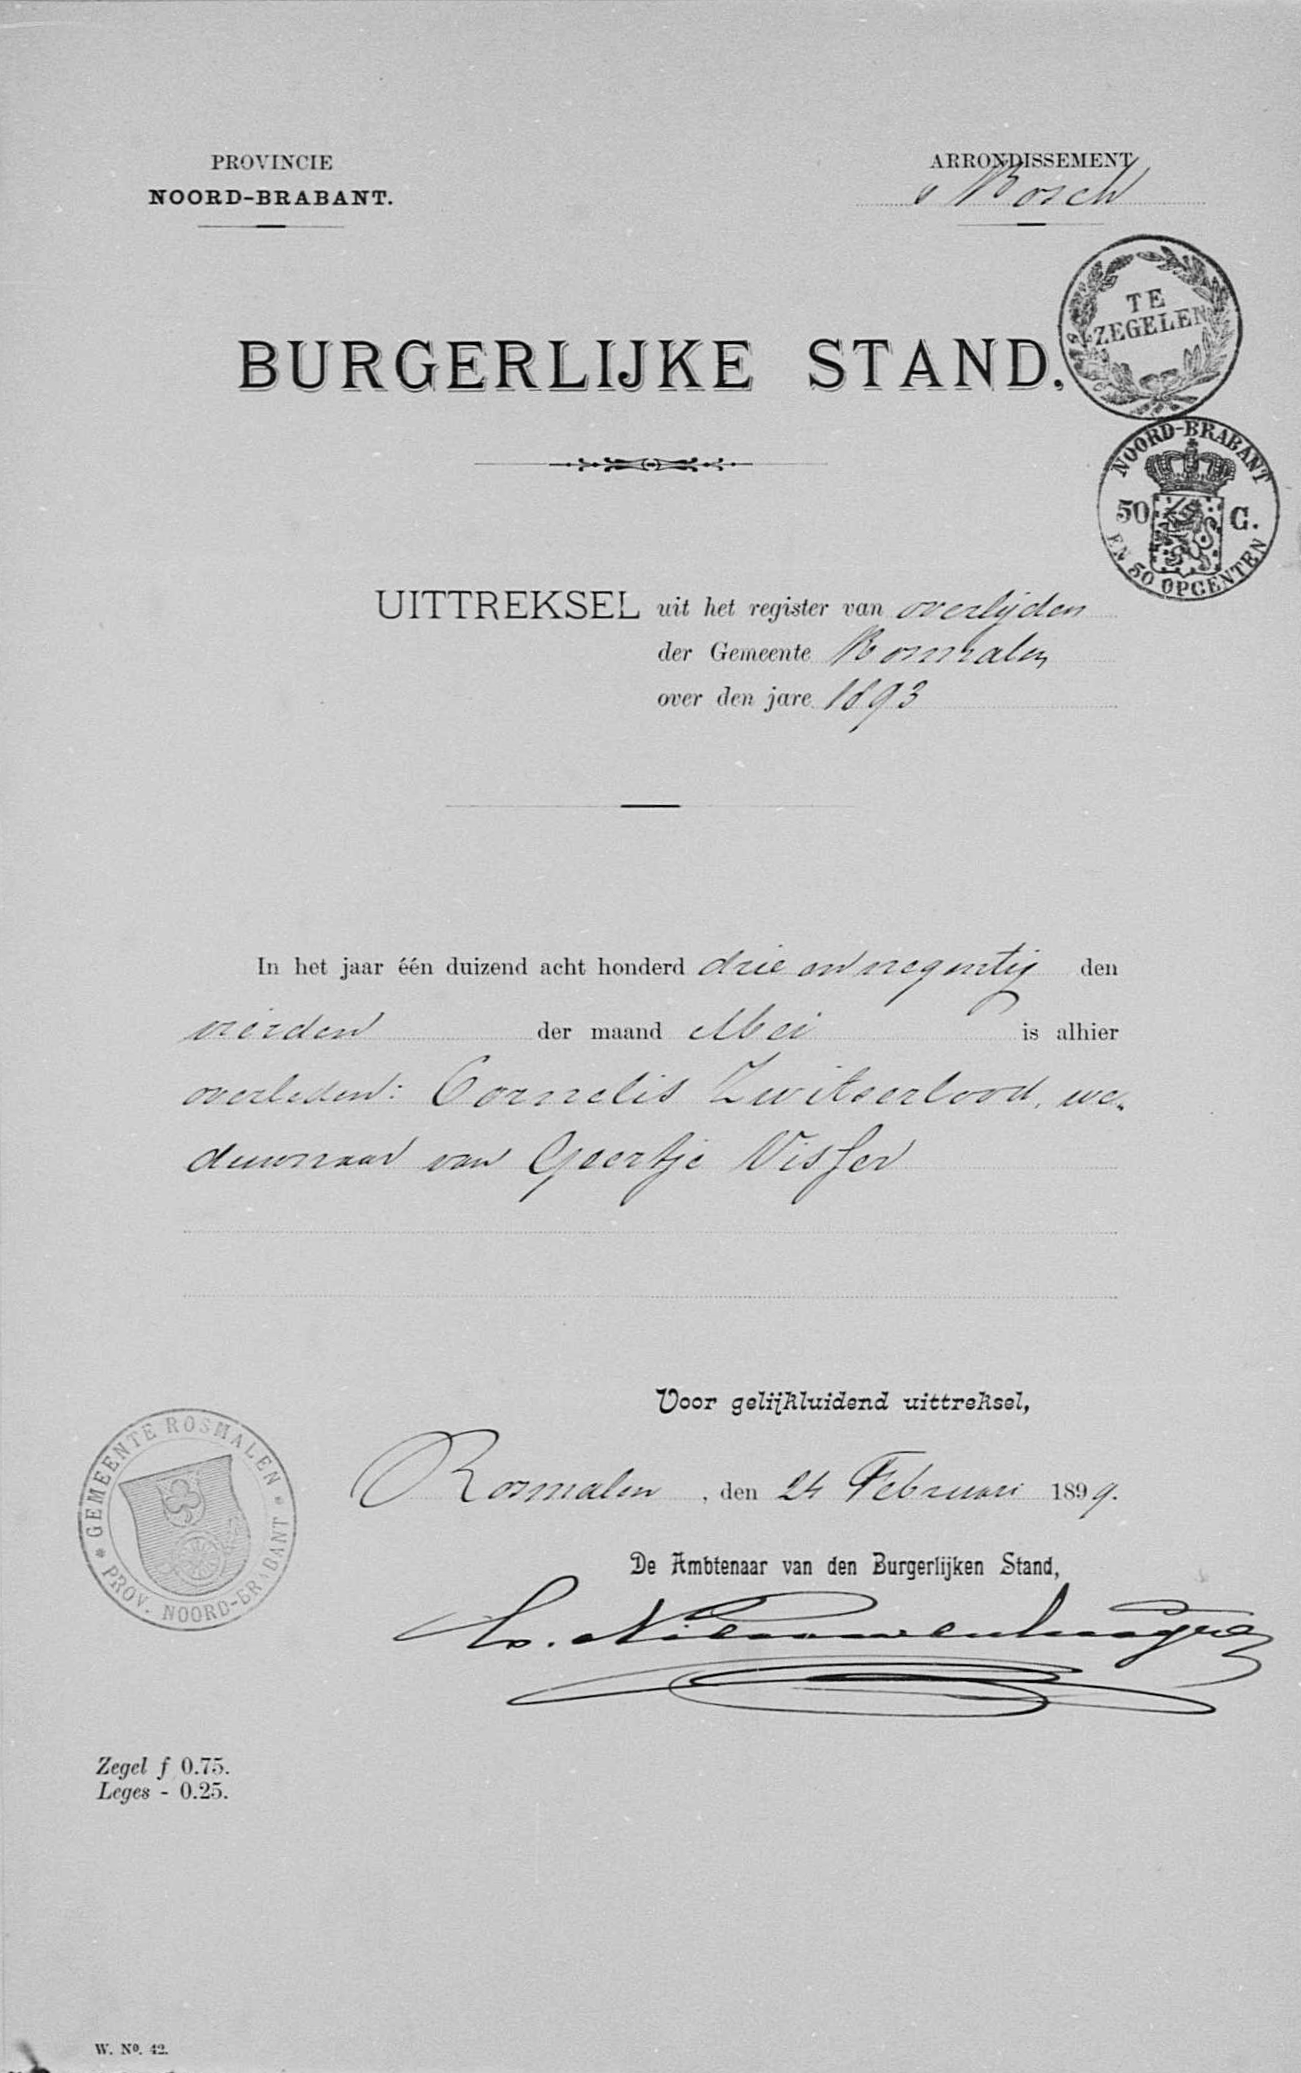 PROVINCIE
NOORD-BRABANT.
ARRONDISSEMENT
s Bosch
TE
ZEGELEN
BURGERLIJKE STAND.
NOORD-BRABANT
50 C.
EN 50 OPCENTEN
UITTREKSEL uit het register van overlijden
der Gemeente Rosmalen
over den jare 1893
In het jaar één duizend acht honderd drie en negentig den
vierden der maand Mei is alhier
overleden: Cornelis Zwitserlood, we-
duwnaar van Geertje Visser
Voor gelijkluidend uittreksel,
Rosmalen, den 24 Februari 1899.
De Ambtenaar van den Burgerlijken Stand,
Nieuwenhuijze
* GEMEENTE ROSMALEN *
PROV. NOORD-BRABANT
Zegel f 0.75.
Leges - 0.25.
W. No. 42.